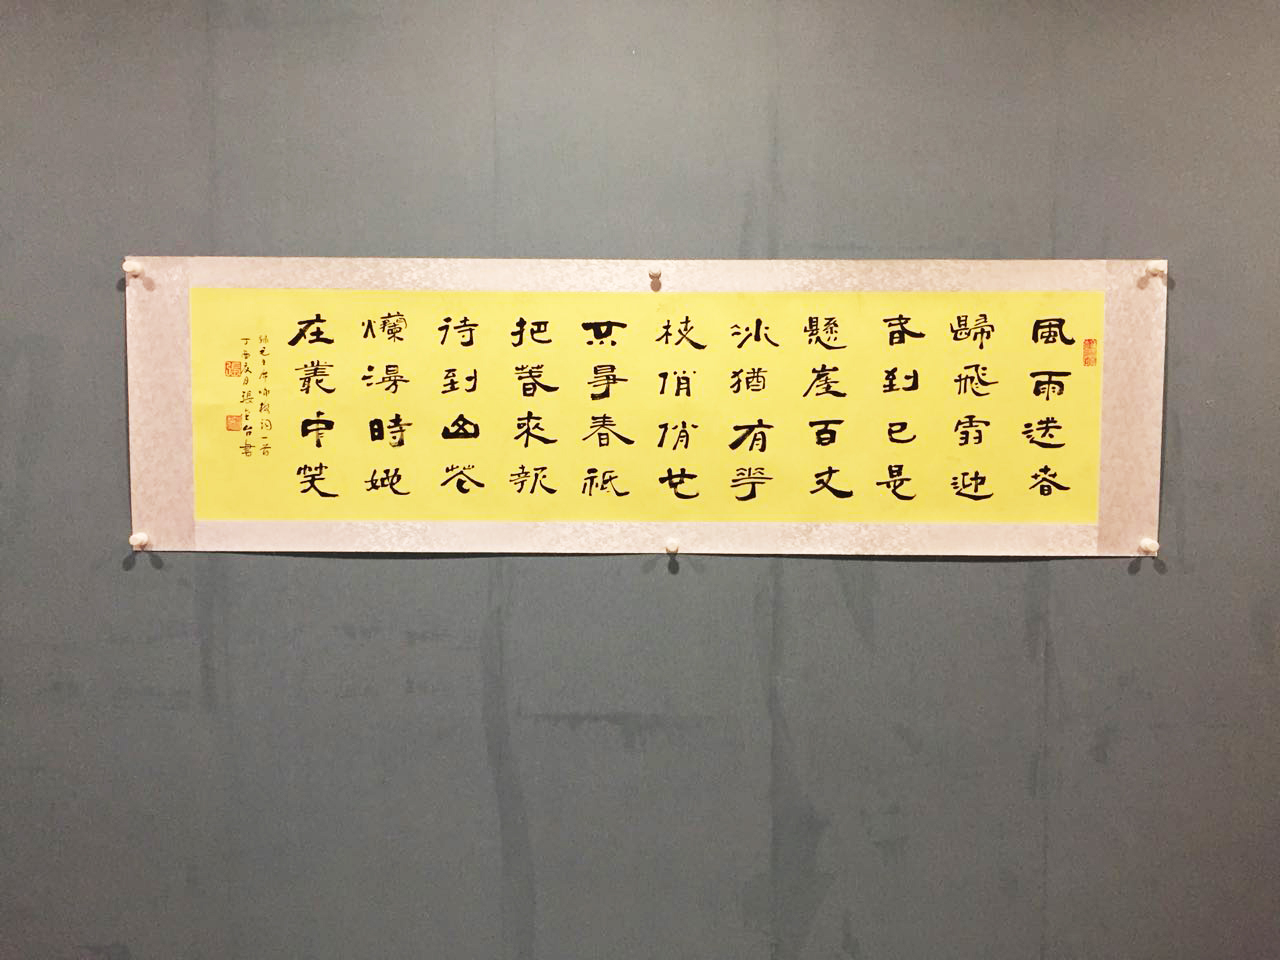 風雨送春
歸飛雪迎
春到已是
懸崖百丈
冰猶有華
枝俏俏也
不爭春祇
把春來報
待到山花
爛漫時她
在叢中笑
錄毛主席咏梅詞一首
丁酉夏月張金台書